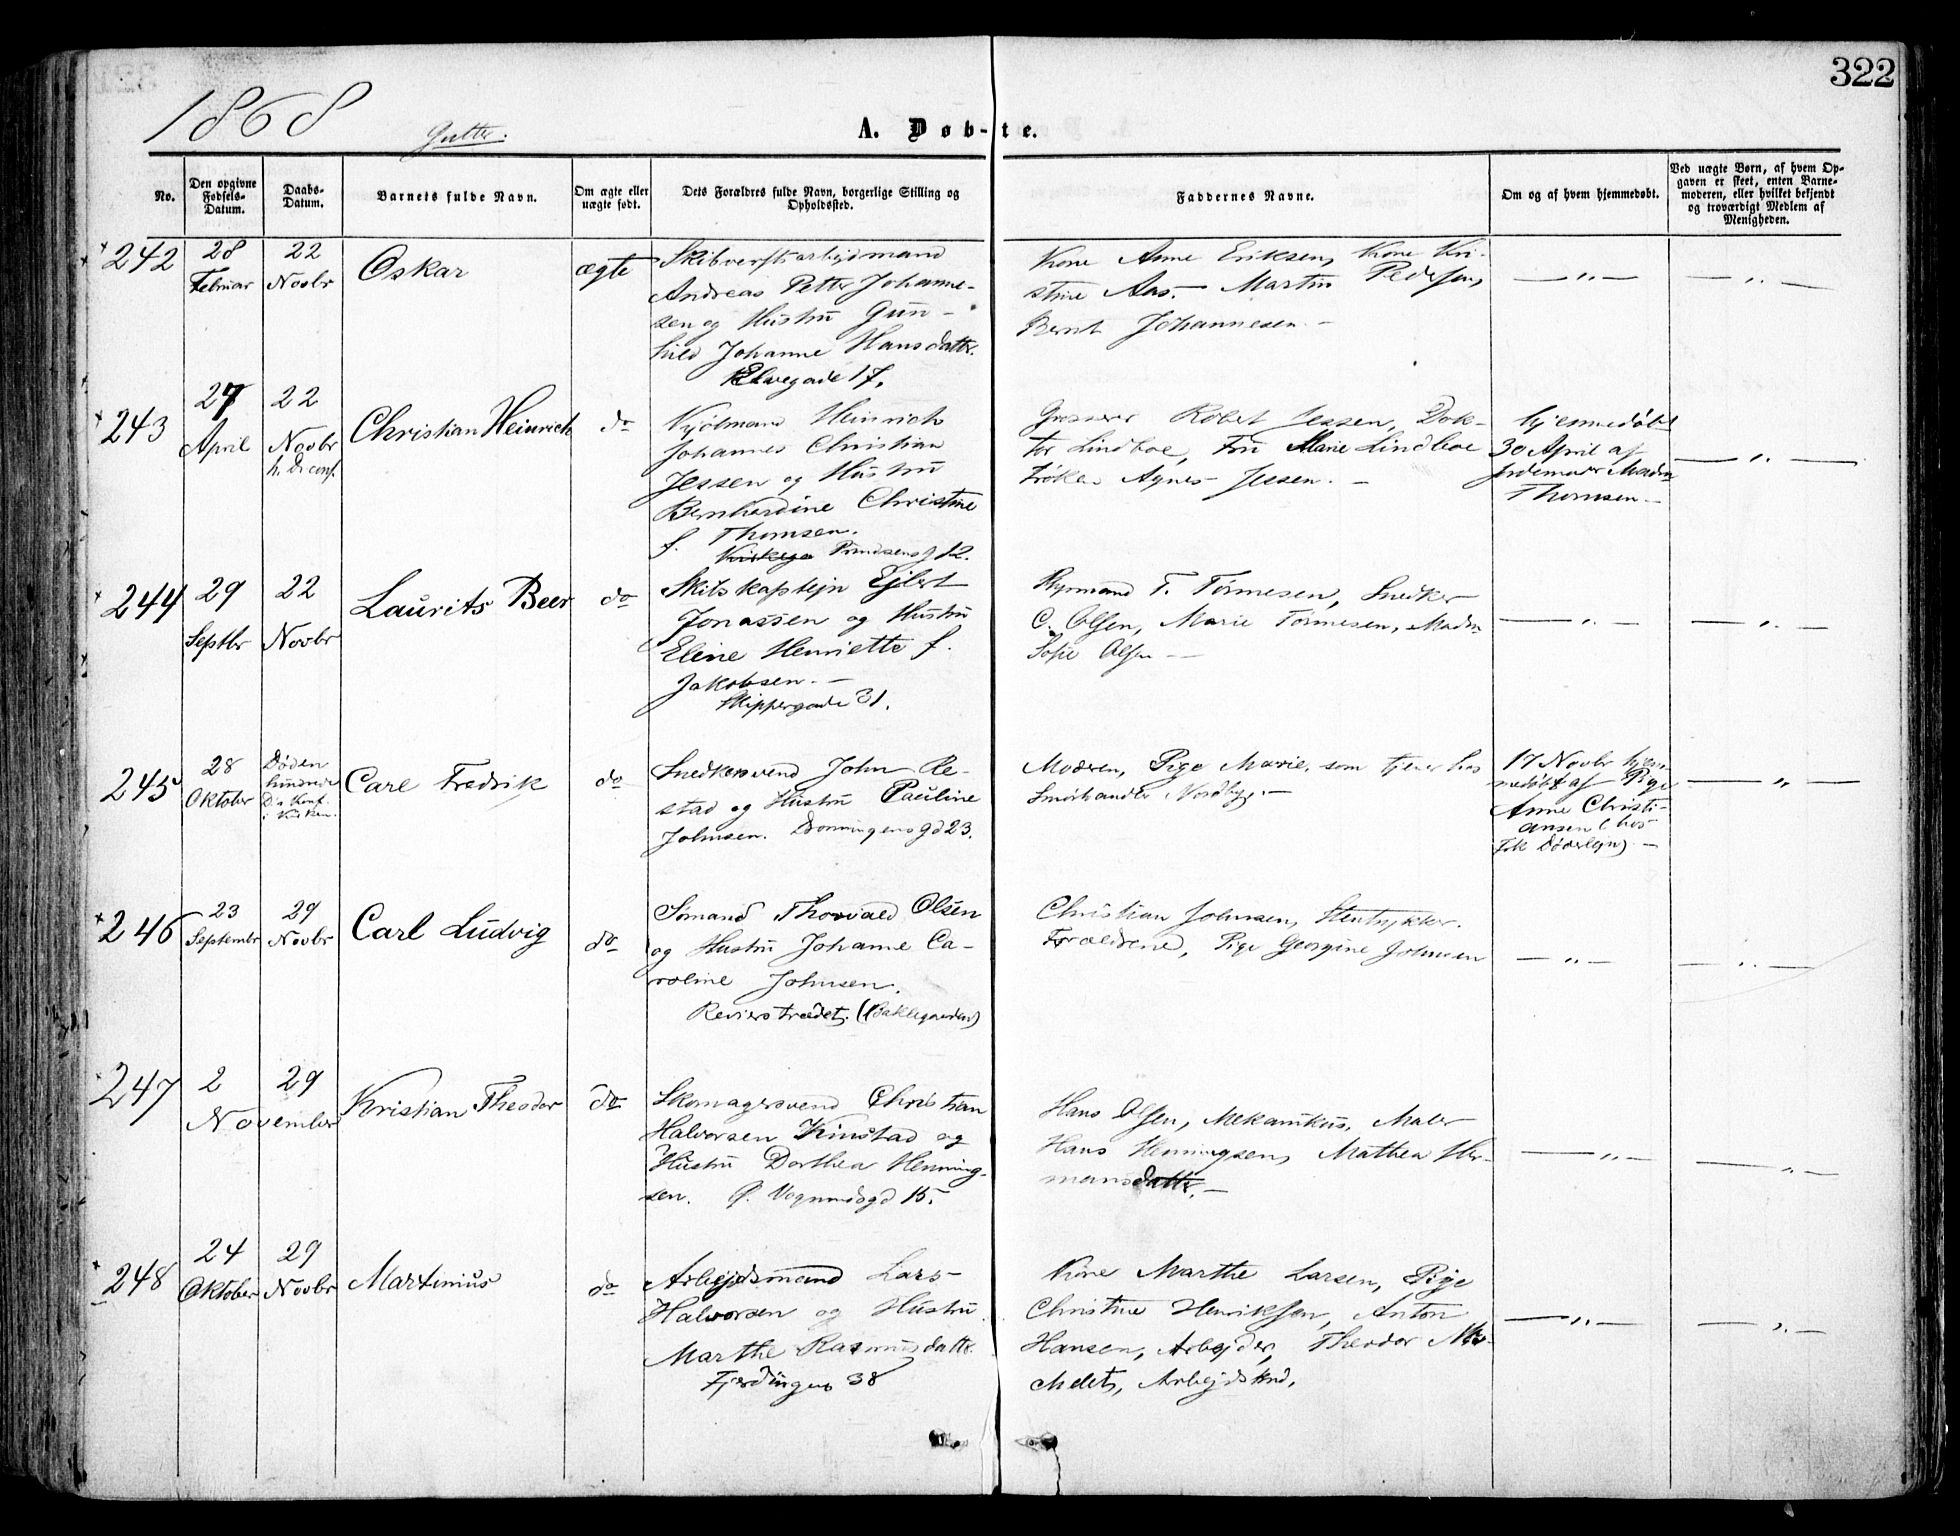 322
1868
Gutter.
A. Døb-te.
No.
Den opgivne Fødsels-Datum.
Daabs-Datum.
Barnets fulde Navn.
Om ægte eller uægte født.
Dets Forældres fulde Navn, borgerlige Stilling og Opholdssted.
Faddernes Navne.
Om og af hvem hjemmedøbt.
Ved uægte Børn, af hvem Opgaven er skeet, enten Barnemoderen, eller hvilket bekjendt og troværdigt Medlem af Menigheden.
242
28 Februar
22 Novbr
Oskar
ægte
Skibverftsarbejdmand
Andreas Petter Johanne-
sen og Hustru Gun-
hild Johanne Hansdatter.
Elvegade 17.
Kone Anne Eriksen, Kone Kri-
stine Aas. Martin Pedersen,
Bernt Johannesen. -
— „ —
— „ —
243
27 April
22 Novbr
h. D. conf.
Christian Heinrich
do
Kjøbmand Heinrich
Johannes Christian
Jessen og Hustru
Bernhardine Christine
f. Thomsen.
12.
Grosserer Robert Jessen, Dok-
tor Lindboe, Fru Marie Lindboe
Frøken Agnes Jessen. -
hjemmedøbt
30 April af
Jordemoder Madm
Thomsen -
— „ —
244
29 Septbr
22 Novbr
Laurits Beer
do
Skibskaptejn Ejlert
Jonassen og Hustru
Eline Henriette f.
Jakobsen. -
Skippergade 31.
Styrmand T. Tørmesen, Snedker
C. Olsen, Marie Tørmesen, Madm
Sofie Olsen -
— „ —
— „ —
245
28 Oktober
Døden
hindrede
D's Konf.
i Kirken.
Carl Fredrik
do
Snedkersvend John Re-
stad og Hustru Pauline
Johnsen. Dronningens gd 23.
Moderen, Pige Marie, som tjener hos
Smørhandler Nordbye. -
17 Novbr hjem-
medøbt af Pige
Anne Christi-
ansen (hos
Frk Døderlejn) -
— „ —
246
23 Septembr
29 Novbr
Carl Ludvig
do
Sømand Thorvald Olsen
og Hustru Johanne Ca-
roline Johnsen.
Reviers trædet. (Bakkegaarden)
Christian Johnsen, Stentrykker.
Forældrene, Pige Georgine Johnsen
— „ —
— „ —
247
2 29
November
Kristian Theodor
do
Skomagersvend Christian
Halvorsen Kinstad og
Hustru Dorthea Henning-
sen. Ø. Vognmdsgd 15.
Hans Olsen, Mekanikus, Maler
Hans Henningsen, Mathea Her-
mansdatter. -
— „ —
— „ —
248
24 Oktober
29 Novbr
Martinius
do
Arbejdsmand Lars
Halvorsen og Hustru
Marthe Rasmusdatter
Fjerdingen 38
Kone Marthe Larsen, Pige
Christine Henriksen, Anton
Hansen, Arbejder, Theodor Mi-
chelet, Arbejdsknd.
— „ —
— „ —